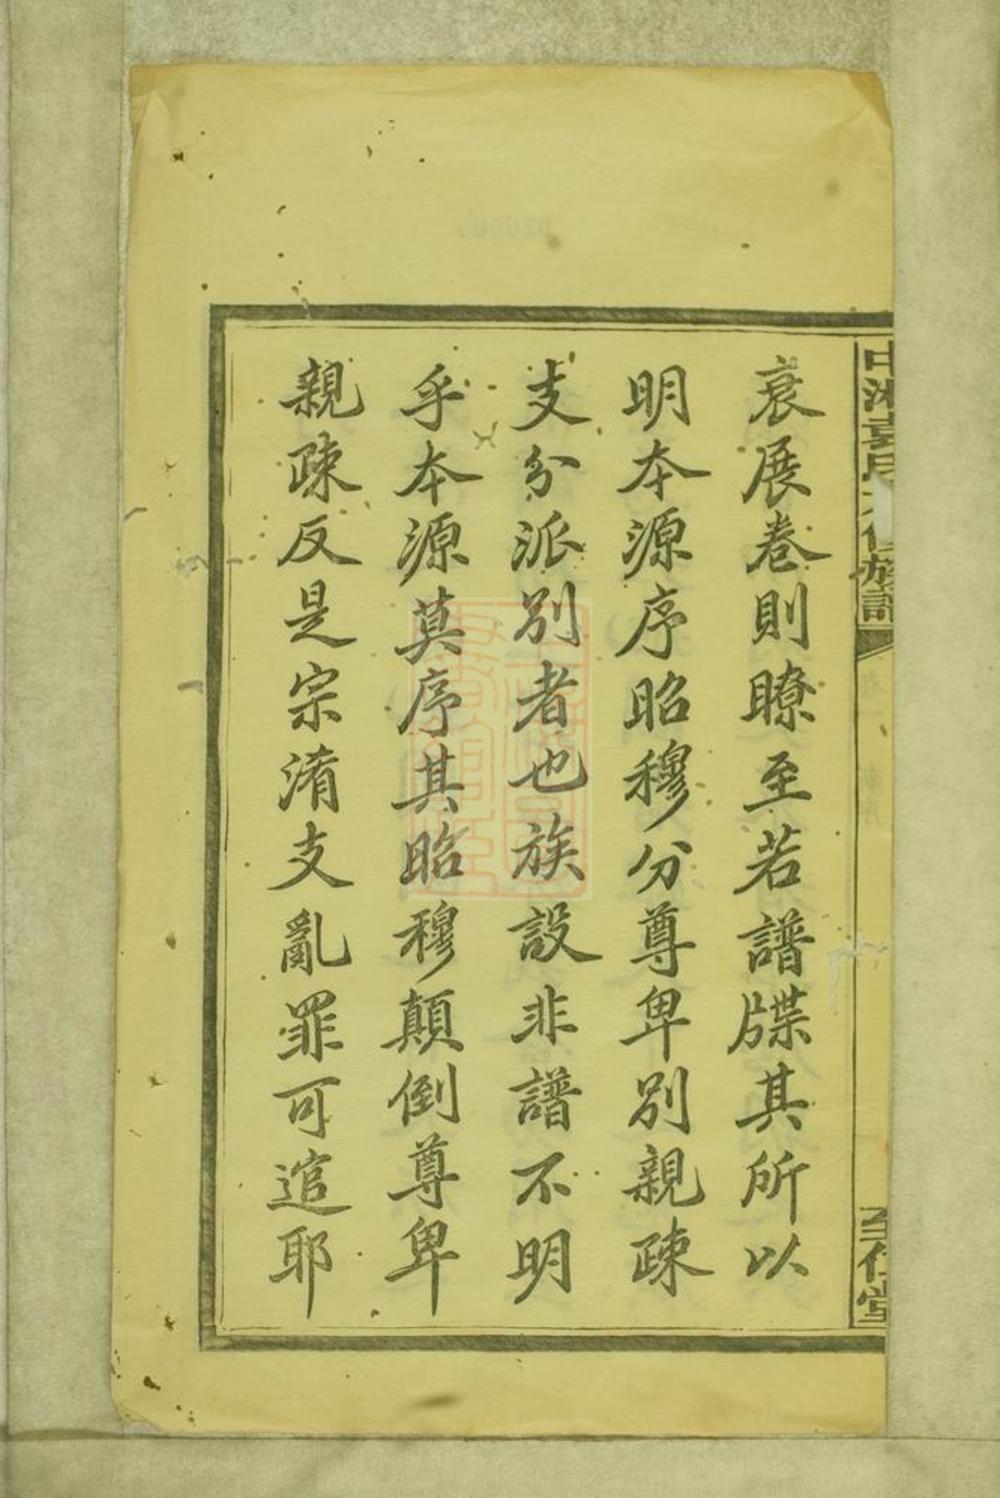 衰展卷則瞭至若譜牒其所以
明本源序昭穆分尊卑別親疎
支分派別者也族設非譜不明
乎本源莫序其昭穆顛倒尊卑
親疎反是宗淆支亂罪可逭耶
中湘袁氏 修族譜
至仁堂